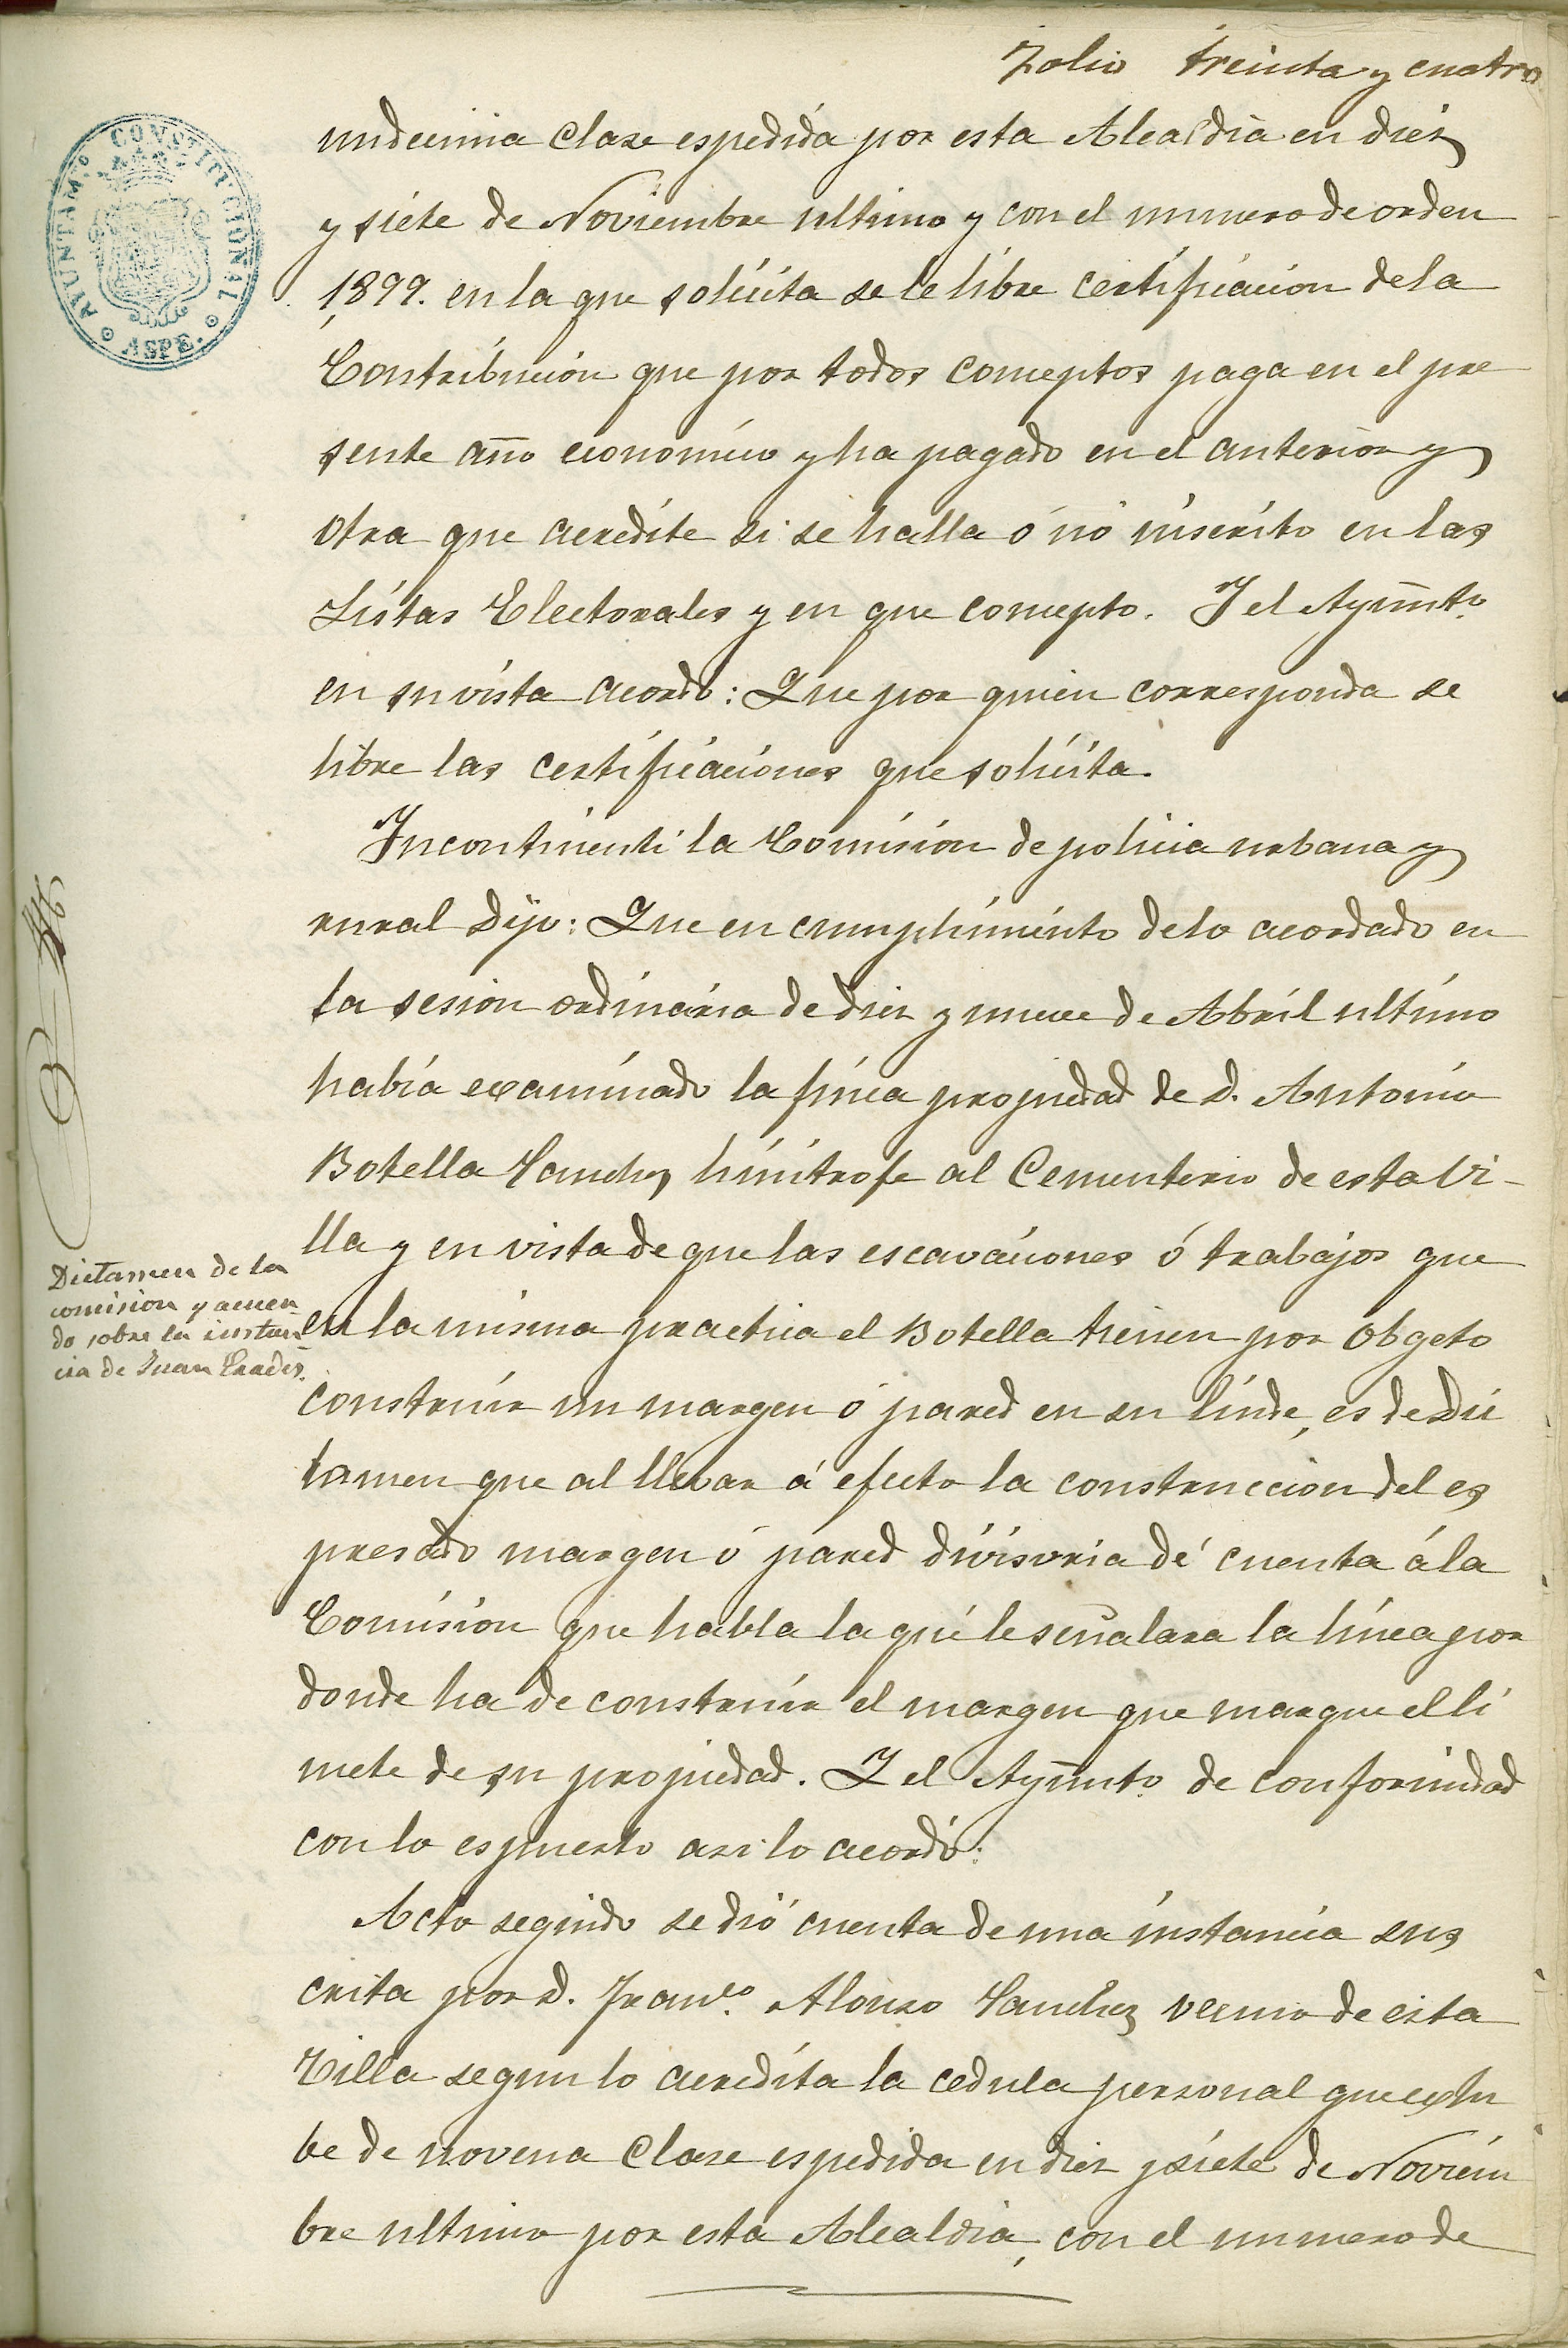 Folio treinta y cuatro
AYUNTAM.º CONSTITUCIONAL
ASPE.
undecima clase espedida por esta Alcaldia en diez
y siete de Noviembre ultimo y con el numero de orden
1,899. en la que solicita se le libre certificacion de la
Contribucion que por todos conceptos paga en el pre
sente año economico y ha pagado en el anterior y
otra que acredite si se halla ó nó inscrito en las
Listas Electorales y en que concepto. Y el Ayunt.º
en su vista acordó: Que por quien corresponda se
libre las certificaciones que solicita.
Incontinenti la Comision de policia urbana y
rural Dijo: Que en cumplimiento de lo acordado en
la sesion ordinaria de diez y nueve de Abril ultimo
había examinado la finca propiedad de D. Antonio
Botella Sanchez limitrofe al Cementerio de esta Vi-
lla y en vista de que las escavaciones ó trabajos que
en la misma practica el Botella tienen por obgeto
construir un margen ó pared en su linde, es de Dic
tamen que al llevar á efecto la construccion del es
presado margen ó pared divisoria dé cuenta á la
Comision que habla la que le señalara la línea por
donde ha de construir el margen que marque el li
mete de su propiedad. Y el Ayunto de conformidad
con lo espuesto asi lo acordó:
Acto seguido se dió cuenta de una instancia sus
crita por D. Franco. Alonso Sanchez vecino de esta
Villa segun lo acredita la cedula personal que exhi
be de novena clase espedida en diez y siete de Noviem
bre ultimo por esta Alcaldia, con el numero de
Dictamen de la
comision y acuer
do sobre la instan
cia de Juan